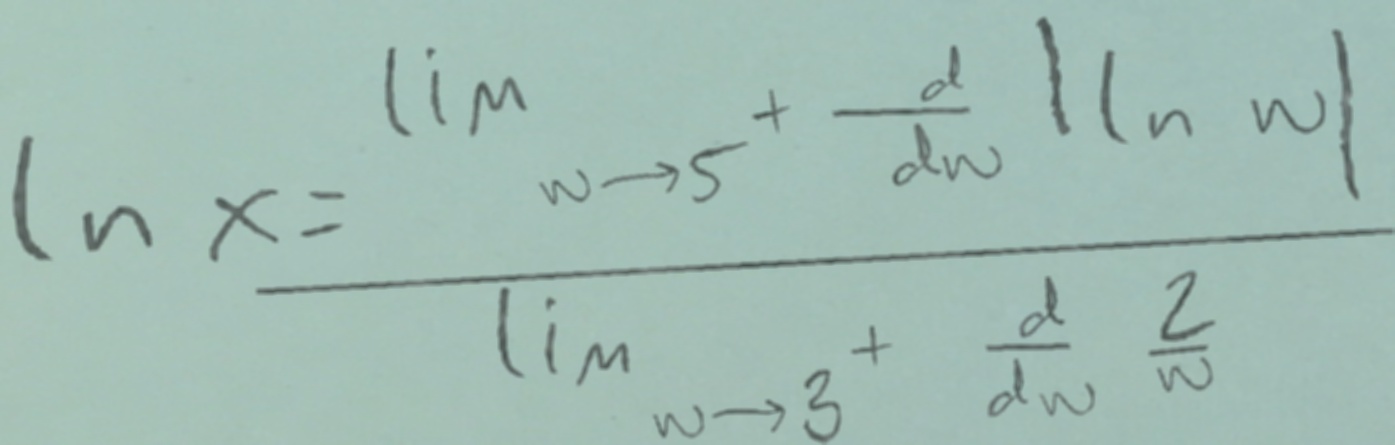 ln x = \frac{\lim_{w \to 5^+} \frac{d}{dw} |ln w|}{\lim_{w \to 3^+} \frac{d}{dw} \frac{2}{w}}